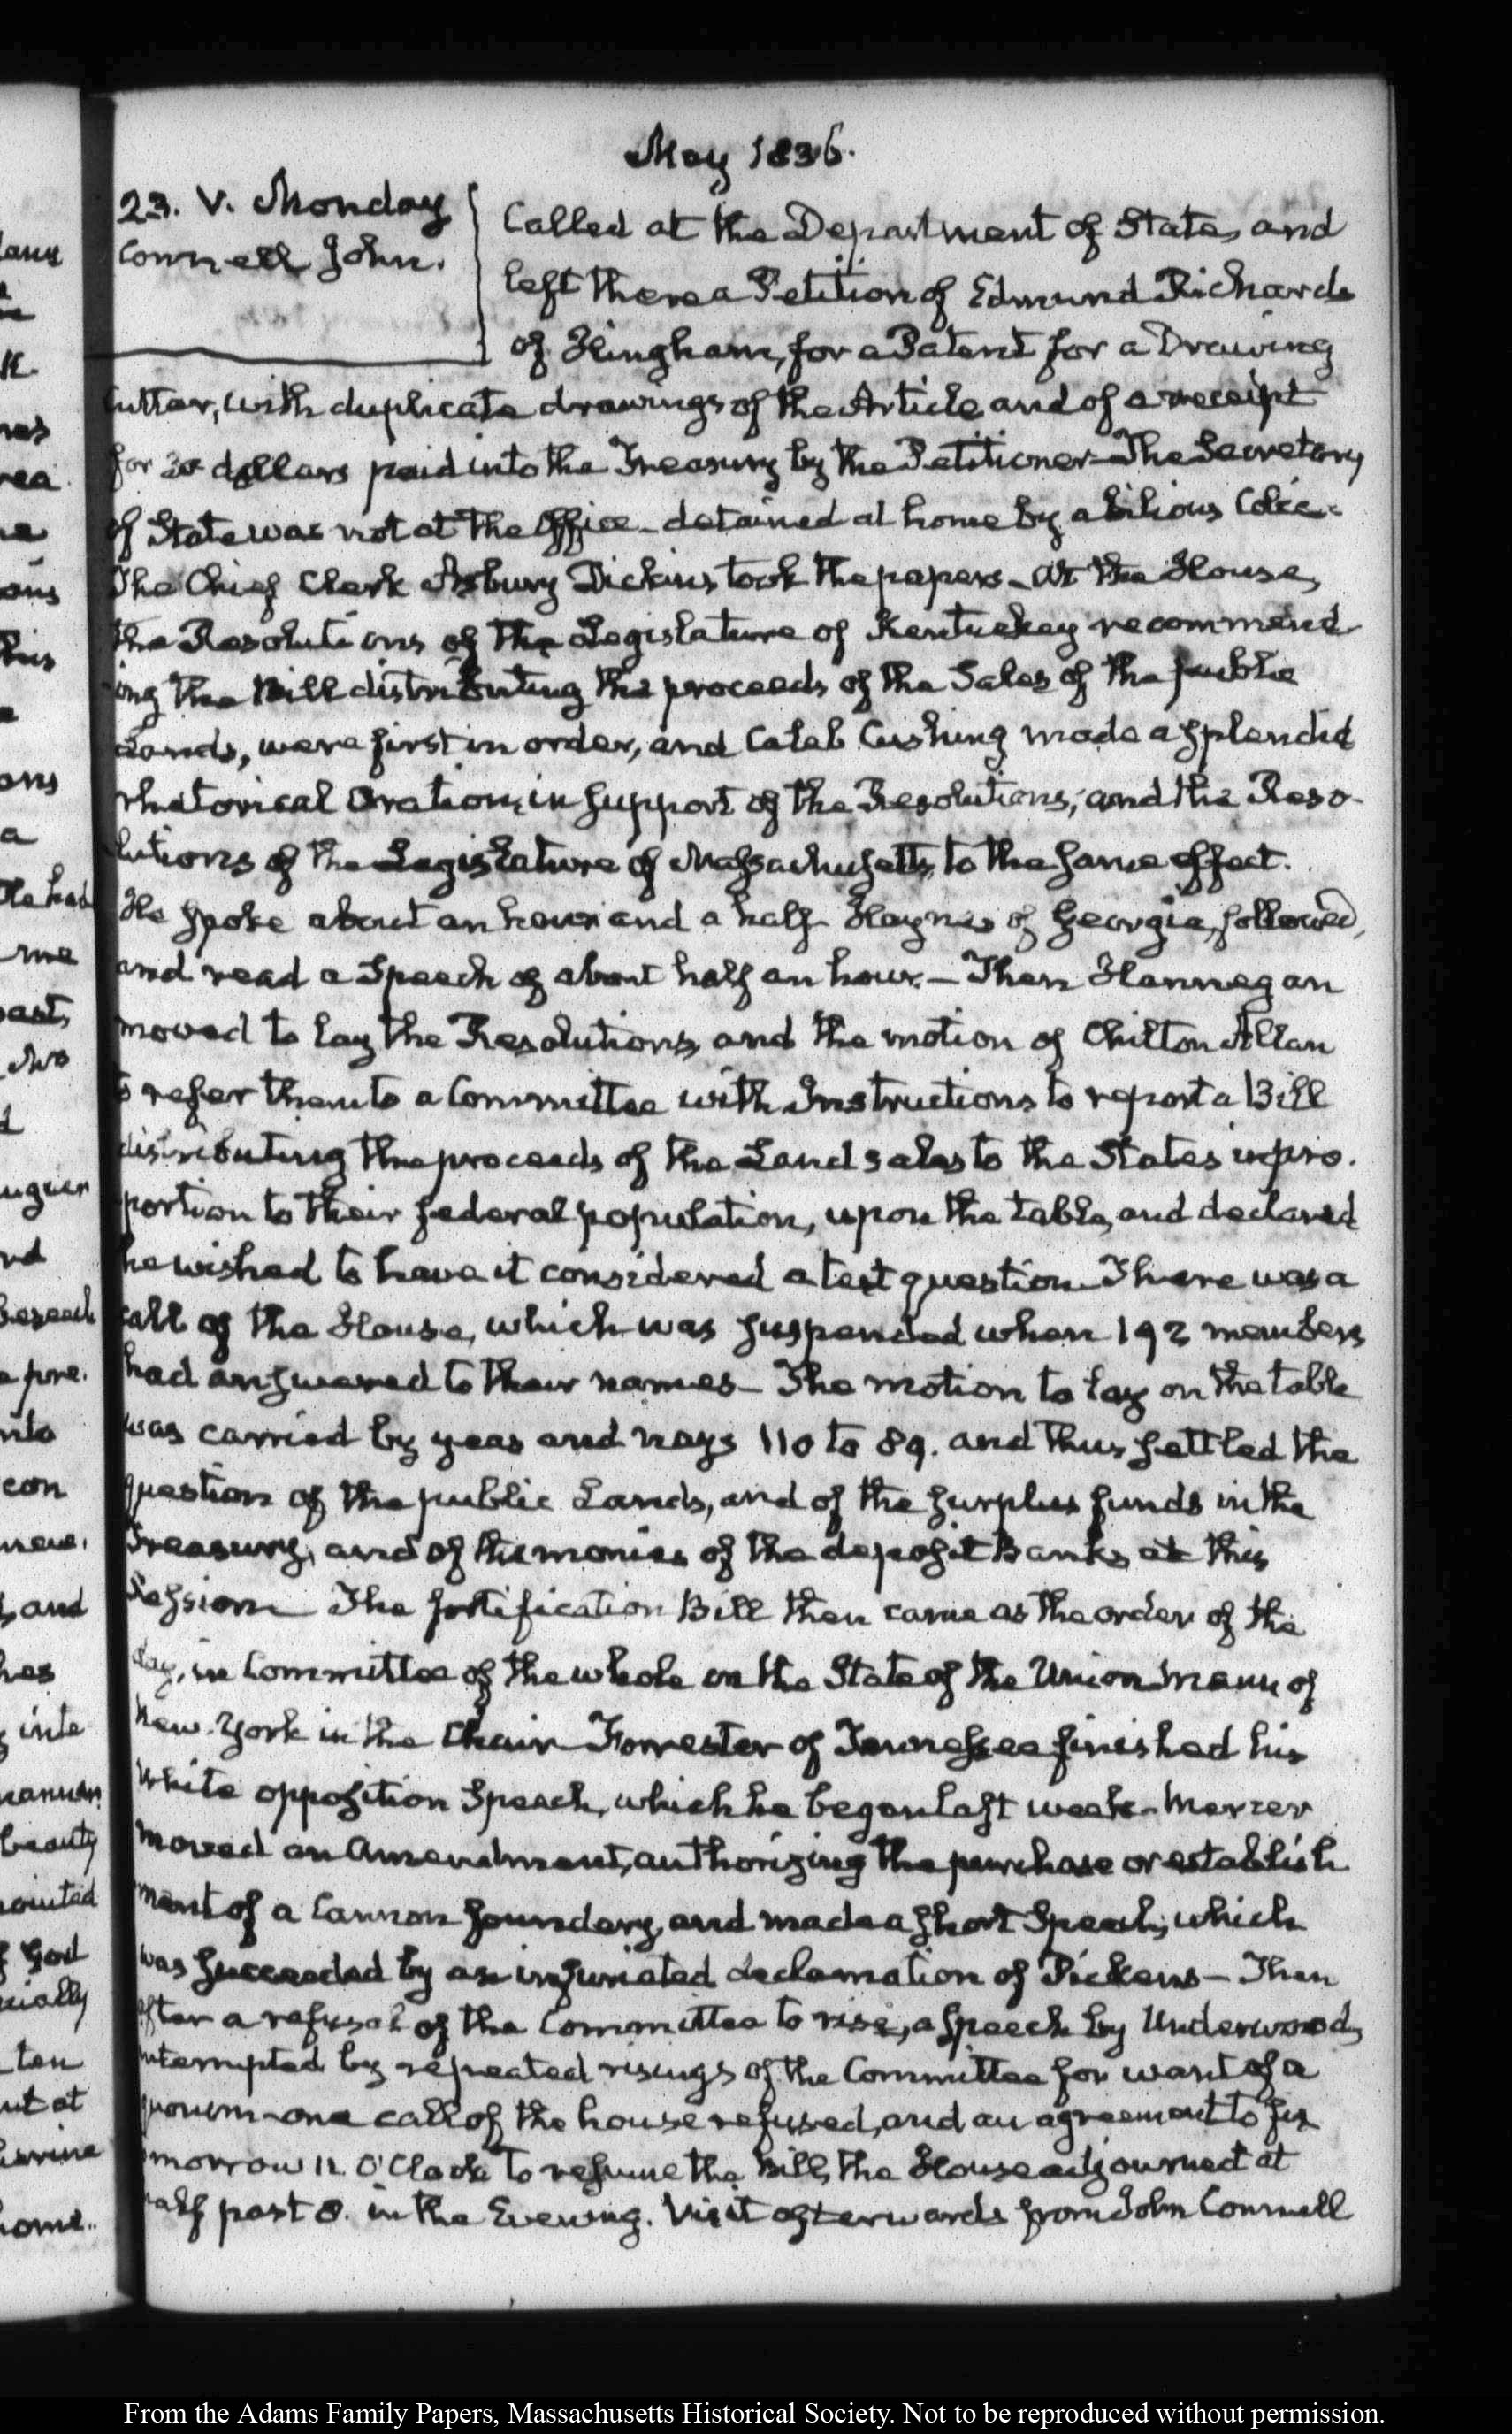 May 1836.
23. V. Monday
Connell John.
Called at the Department of State, and
left there a Petition of Edmund Richards
of Hingham, for a Patent for a Drawing
Cutter, with duplicate drawings of the Article and of a receipt
for 30 dollars paid into the Treasury by the Petitioner— The Secretary
of State was not at the Office— detained at home by a bilious Colic—
The Chief Clerk Asbury Dickins took the papers— At the House,
the Resolutions of the Legislature of Kentuckey recommend-
ing the Bill distributing the proceeds of the Sales of the public
Lands, were first in order, and Caleb Cushing made a splendid
rhetorical Oration, in support of the Resolutions, and the Reso-
lutions of the Legislature of Massachusetts, to the same effect.
He spoke about an hour and a half— Haynes of Georgia, followed,
and read a Speech of about half an hour.— Then Hannegan
moved to lay the Resolutions, and the motion of Chilton Allan
to refer them to a Committee with Instructions to report a Bill
distributing the proceeds of the Land sales to the States in pro-
portion to their federal population, upon the table, and declared
he wished to have it considered a test question— There was a
call of the House, which was suspended when 192 members
had answered to their names— The motion to lay on the table
was carried by yeas and nays 110 to 89. and thus settled the
question of the public Lands, and of the surplus funds in the
Treasury, and of the monies of the deposit Banks, at this
Session— The fortification Bill then came as the order of the
day, in Committee of the whole on the State of the Union Mann of
New-York in the Chair— Forrester of Tennessee finished his
White opposition Speech, which he began last week— Mercer
moved an Amendment, authorizing the purchase or establish
ment of a Cannon foundery, and made a short Speech, which
was succeeded by an infuriated declamation of Pickens— Then
after a refusal of the Committee to rise, a speech by Underwood,
interrupted by repeated risings of the Committee for want of a
quorum— one call of the house refused, and an agreement to fix
tomorrow 11. O'Clock to resume the Bill, the House adjourned at
half past 8. in the Evening. Visit afterwards from John Connell
From the Adams Family Papers, Massachusetts Historical Society. Not to be reproduced without permission.